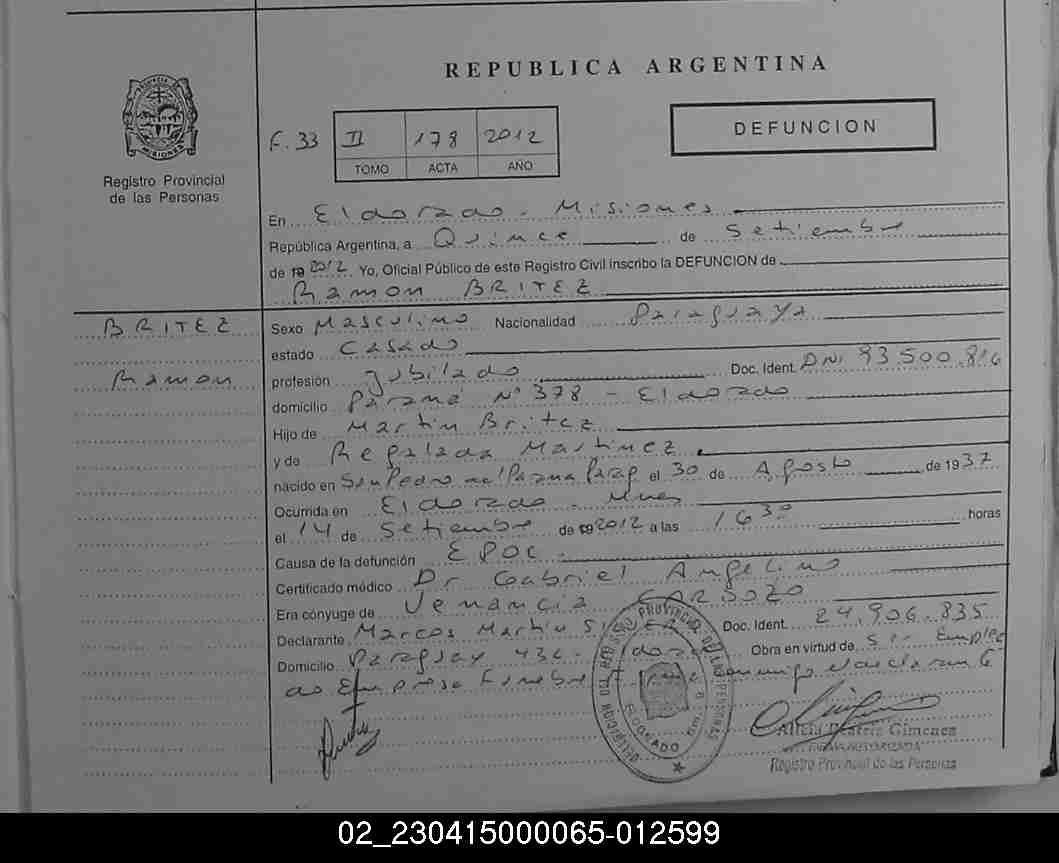 REPUBLICA ARGENTINA
F. 33 II 178 2012
TOMO ACTA AÑO
DEFUNCION
PROVINCIA DE MISIONES
Registro Provincial
de las Personas
En Eldorado. Misiones
República Argentina, a Quince de Setiembre
de 19 2012. Yo, Oficial Público de este Registro Civil inscribo la DEFUNCION de
Ramon BRITEZ
BRITEZ
Ramon
Sexo Masculino Nacionalidad Paraguaya
estado Casado
profesión Jubilado Doc. Ident. DNI 93500.816
domicilio Paraná Nº 378 - Eldorado
Hijo de Martin Britez
y de Regalada Martinez
nacido en San Pedro del Parana Parag el 30 de Agosto de 1937
Ocurrida en Eldorado. Mnes
el 14 de Setiembre de 19 2012 a las 16 30 horas
Causa de la defunción EPOC.
Certificado médico Dr Gabriel Angelino
Era cónyuge de Venancia CARDOZO
Declarante Marcos Martin Doc. Ident. 24,906.835
Domicilio Paraguay 434. Eldorado Obra en virtud de Ser Emplea
do Empresa Funebre Firma conmigo el declarante
DELEGACION DEL REGISTRO PROVINCIAL DE LAS PERSONAS
ELDORADO
Gimenez
FIRMA AUTORIZADA
Registro Provincial de las Personas
02_230415000065-012599